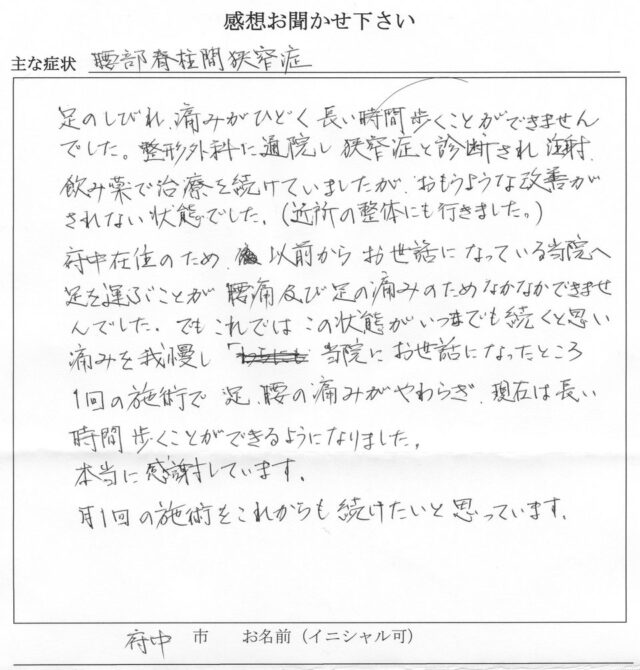 感想お聞かせ下さい
主な症状 腰部脊柱間狭窄症
足のしびれ、痛みがひどく長い時間歩くことができません
でした。整形外科に通院し狭窄症と診断され注射、
飲み薬で治療を続けていましたが、おもうような改善が
されない状態でした。(近所の整体にも行きました。)
府中在住のため、以前からお世話になっている当院へ
足を運ぶことが腰痛及び足の痛みのためなかなかできませ
んでした。でもこれではこの状態がいつまでも続くと思い
痛みを我慢し「当院にお世話になったところ
1回の施術で足、腰の痛みがやわらぎ、現在は長い
時間歩くことができるようになりました。
本当に感謝しています。
月1回の施術をこれからも続けたいと思っています。
府中 市 お名前(イニシャル可)